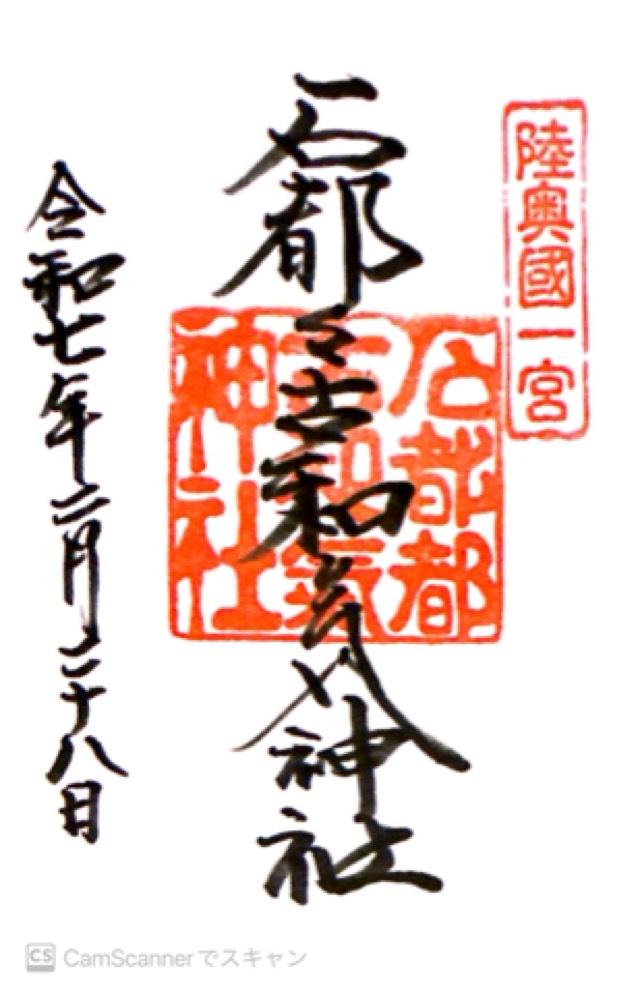 陸奥國一宮
石都々古和気神社
石都都
古和氣
神社
令和七年二月二十八日
CS CamScannerでスキャン